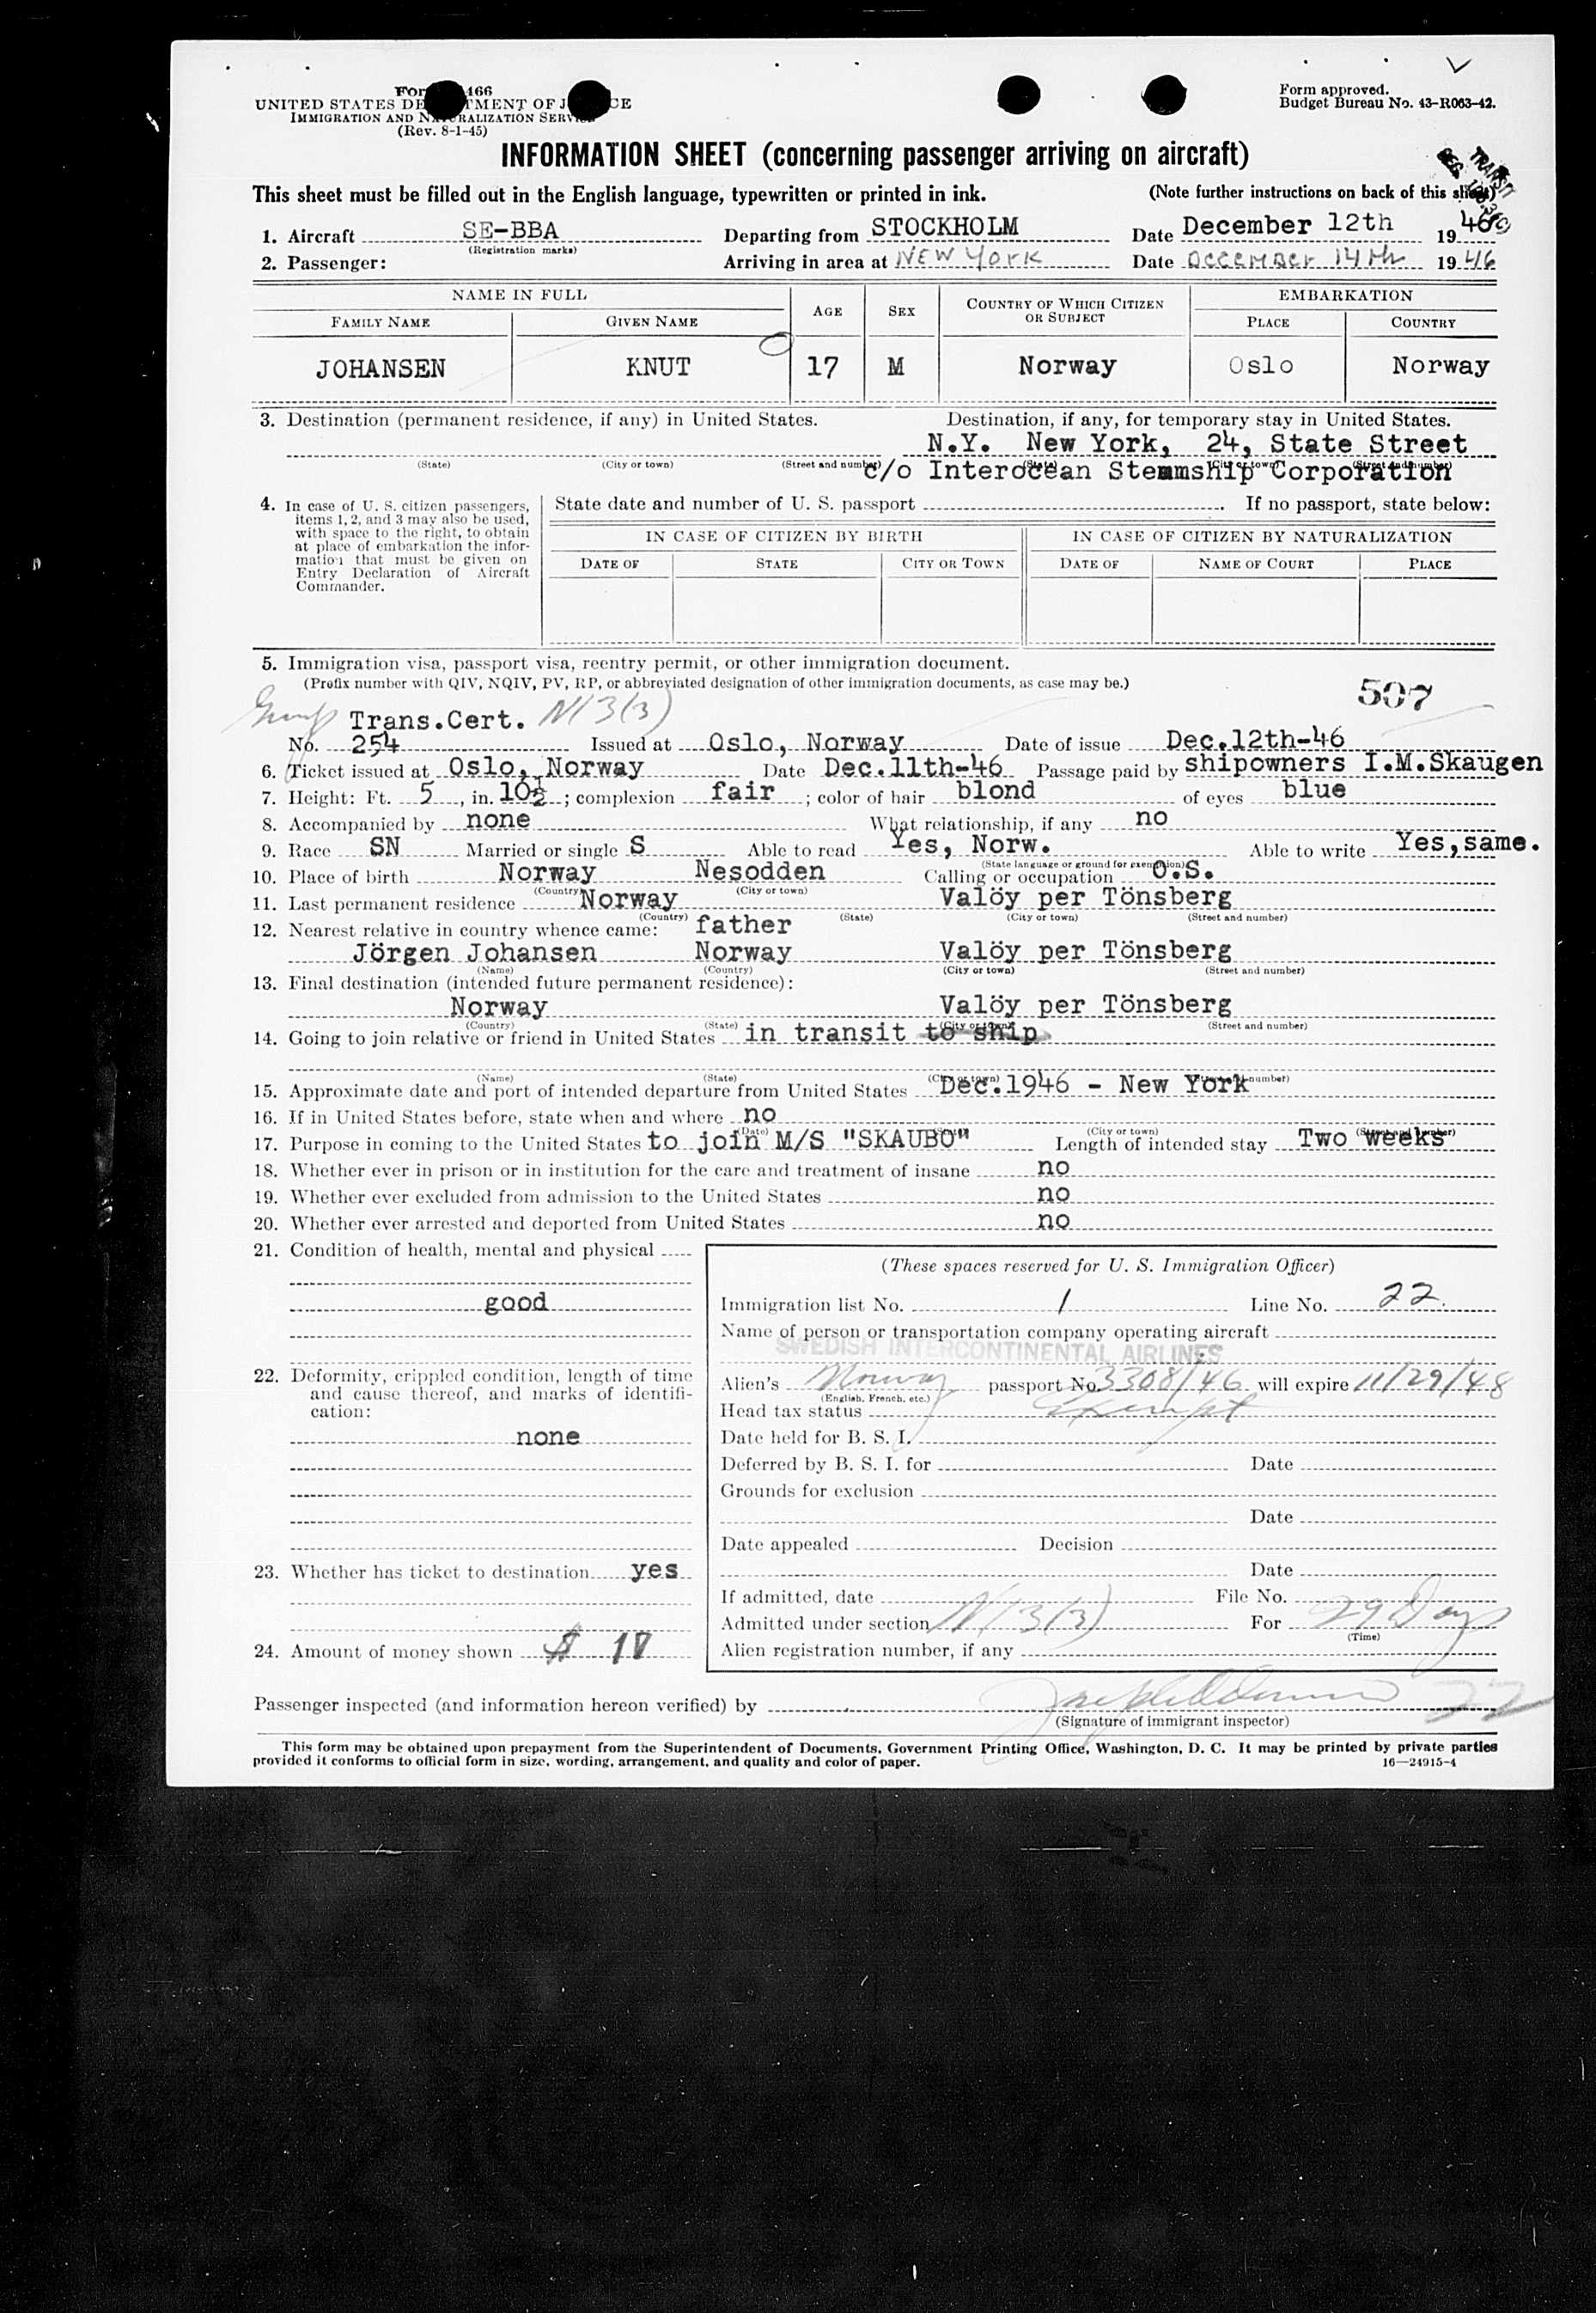 Form 466
UNITED STATES DEPARTMENT OF JUSTICE
IMMIGRATION AND NATURALIZATION SERVICE
(Rev. 8-1-45)
Form approved.
Budget Bureau No. 43-R063-42.
INFORMATION SHEET (concerning passenger arriving on aircraft)
TRANSIT
This sheet must be filled out in the English language, typewritten or printed in ink. (Note further instructions on back of this sheet)
1. Aircraft SE-BBA Departing from STOCKHOLM Date December 12th 1946
(Registration marks)
2. Passenger: Arriving in area at NEW YORK Date DECEMBER 14th 1946
NAME IN FULL AGE SEX COUNTRY OF WHICH CITIZEN OR SUBJECT EMBARKATION
FAMILY NAME GIVEN NAME PLACE COUNTRY
JOHANSEN KNUT 17 M Norway Oslo Norway
3. Destination (permanent residence, if any) in United States. Destination, if any, for temporary stay in United States.
N.Y. New York, 24, State Street
(State) (City or town) (Street and number) (State) (City or town) (Street and number)
c/o Interocean Steamship Corporation
4. In case of U. S. citizen passengers, items 1, 2, and 3 may also be used, with space to the right, to obtain at place of embarkation the information that must be given on Entry Declaration of Aircraft Commander.
State date and number of U. S. passport If no passport, state below:
IN CASE OF CITIZEN BY BIRTH IN CASE OF CITIZEN BY NATURALIZATION
DATE OF STATE CITY OR TOWN DATE OF NAME OF COURT PLACE
5. Immigration visa, passport visa, reentry permit, or other immigration document.
(Prefix number with QIV, NQIV, PV, RP, or abbreviated designation of other immigration documents, as case may be.)
507
Trans.Cert. N(3(3)
No. 254 Issued at Oslo, Norway Date of issue Dec.12th-46
6. Ticket issued at Oslo, Norway Date Dec.11th-46 Passage paid by shipowners I.M.Skaugen
7. Height: Ft. 5, in. 10½; complexion fair; color of hair blond of eyes blue
8. Accompanied by none What relationship, if any no
9. Race SN Married or single S Able to read Yes, Norw. Able to write Yes,same.
(State language or ground for exemption)
10. Place of birth Norway Nesodden Calling or occupation O.S.
(Country) (City or town)
11. Last permanent residence Norway Valöy per Tönsberg
(Country) (State) (City or town) (Street and number)
12. Nearest relative in country whence came: father
Jörgen Johansen Norway Valöy per Tönsberg
(Name) (Country) (City or town) (Street and number)
13. Final destination (intended future permanent residence):
Norway Valöy per Tönsberg
(Country) (State) (City or town) (Street and number)
14. Going to join relative or friend in United States in transit to ship
(Name) (State) (City or town) (Street and number)
15. Approximate date and port of intended departure from United States Dec.1946 - New York
16. If in United States before, state when and where no
(Date) (State) (City or town) (Street and number)
17. Purpose in coming to the United States to join M/S "SKAUBO" Length of intended stay Two weeks
18. Whether ever in prison or in institution for the care and treatment of insane no
19. Whether ever excluded from admission to the United States no
20. Whether ever arrested and deported from United States no
21. Condition of health, mental and physical
good
22. Deformity, crippled condition, length of time and cause thereof, and marks of identification:
none
23. Whether has ticket to destination yes
24. Amount of money shown $ 10
(These spaces reserved for U. S. Immigration Officer)
Immigration list No. 1 Line No. 22
Name of person or transportation company operating aircraft
SWEDISH INTERCONTINENTAL AIRLINES
Alien's Norway passport No. 3308/46 will expire 11/29/48
(English, French, etc.)
Head tax status Exempt
Date held for B. S. I.
Deferred by B. S. I. for Date
Grounds for exclusion
Date
Date appealed Decision
Date
If admitted, date File No.
Admitted under section N(3(3) For 29 Days
(Time)
Alien registration number, if any
Passenger inspected (and information hereon verified) by 22
(Signature of immigrant inspector)
This form may be obtained upon prepayment from the Superintendent of Documents, Government Printing Office, Washington, D. C. It may be printed by private parties
provided it conforms to official form in size, wording, arrangement, and quality and color of paper. 16—24915-4